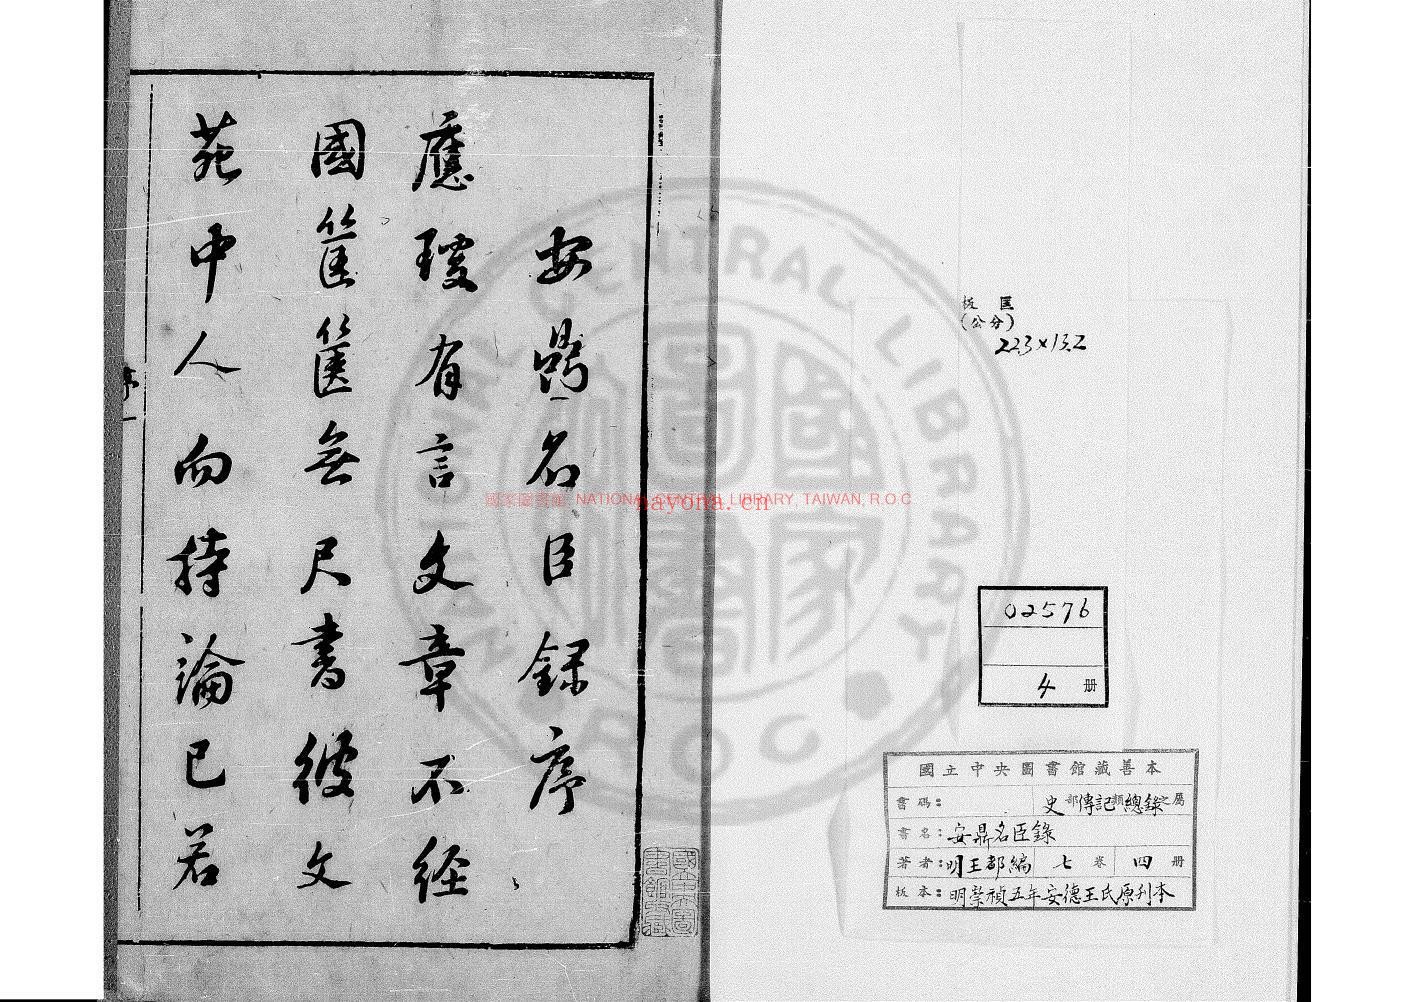 板匡
(公分)
22.3×13.2
02576
4 册
國立中央圖書館藏善本
書碼： 史部傳記類總錄之屬
書名：安鼎名臣錄
著者：明王都編 七卷 四册
板本：明崇禎五年安德王氏原刊本
安鼎名臣錄序
應璩有言文章不經
國筐篋無尺書彼文
苑中人而持論已若
序 一
國家圖書館 NATIONAL CENTRAL LIBRARY, TAIWAN, R.O.C
nayona.cn
NATIONAL CENTRAL LIBRARY R O C
國家圖書